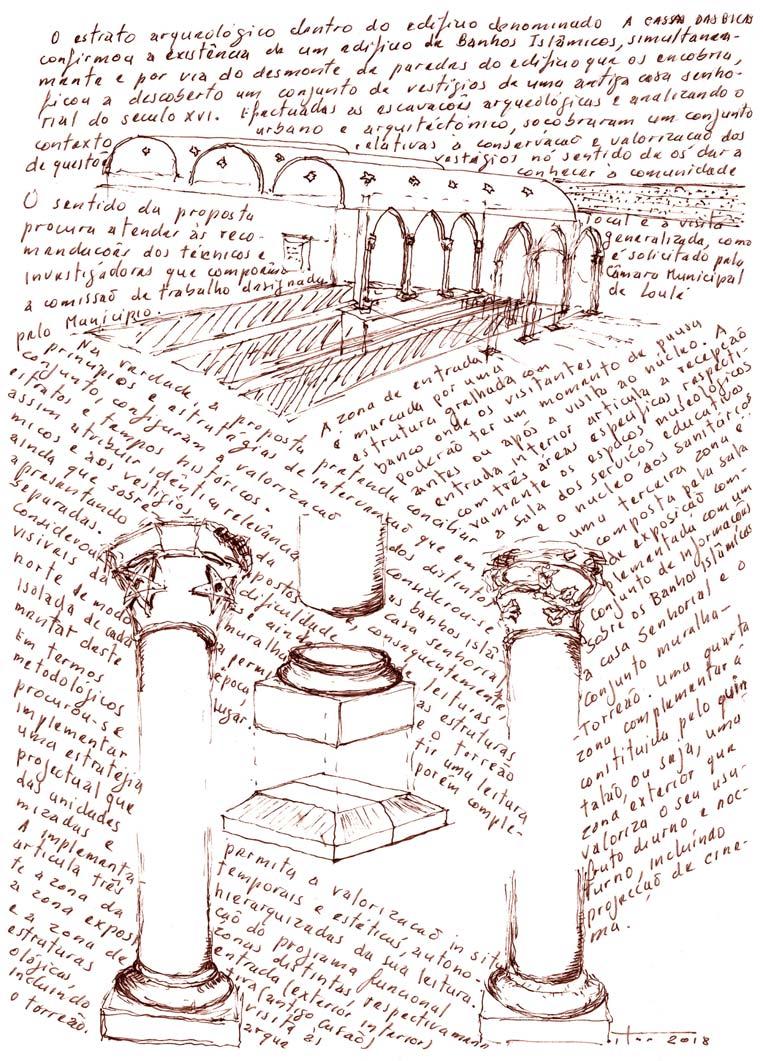 O estrato arqueológico dentro do edifício denominado A CASSA DAS BICAS
confirmou a existência de um edifício de Banhos Islâmicos, simultanea-
mente e por via do desmonte de paredes do edifício que os encobria,
ficou a descoberto um conjunto de vestígios de uma antiga casa senho-
rial do século XVI. Efectuadas as escavações arqueológicas e analizando o
contexto urbano e arquitéctónico, soçobraram um conjunto
de questões relativas à conservação e valorização dos
vestígios no sentido de os dar a
conhecer à comunidade
local e à visita
generalizada, como
é solicitado pela
Câmara Municipal
de Loulé
O sentido da proposta
procura atender às reco-
mendações dos técnicos e
investigadores que compõem
a comissão de trabalho designada
pelo Município.
Na verdade a proposta pretende conciliar
princípios e estratégias de intervenção que em
conjunto, configuram a valorização dos distintos
estratos e tempos históricos. Considerou-se
assim atribuir idêntica relevância aos banhos islâ-
micos e aos vestígios da casa senhorial
ainda que sobrepostos e, consequentemente,
apresentando dificuldade de leituras
separadas. se ainda as estruturas
considerou muralha e o torreão
visíveis da a permitir uma leitura
norte de modo época, porém comple-
isolada de cada lugar.
mentar deste
Em termos
metodológicos
procurou-se
implementar
uma estratégia
projectual que permita a valorização in situ
das unidades temporais e estéticas, autono-
mizadas e hierarquizadas da sua leitura.
A implementação do programa funcional
articula três zonas distintas, respectivamen
te a zona da entrada (exterior, interior)
a zona expositiva (antigo Casão)
e a zona de visita às
estruturas arque
ológicas,
incluindo
o torreão.
A zona de entrada
é marcada por uma
estrutura gralhada com
banco onde os visitantes
poderão ter um momento de pausa
antes ou após a visita ao núcleo. A
entrada interior articula a recepção
com três áreas específicas, respecti-
vamente os espaços museológicos
a sala dos serviços educativos
e o núcleo dos sanitários
uma terceira zona é
composta pela sala
de exposição com-
plementada com um
conjunto de informações
sobre os Banhos Islâmicos
a casa Senhorial e o
conjunto muralha-
Torreão. Uma quarta
zona complementar é
constituída pelo quin
talão, ou seja, uma
zona exterior que
valoriza o seu usu-
fruto diurno e noc-
turno, incluindo
projecção de cine-
ma.
2018